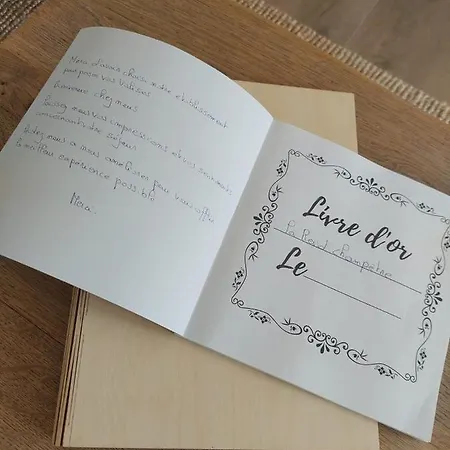 Merci d'avoir choisi notre établissement
pour passer vos vacances
Bienvenue chez nous
Laissez nous vos impressions et vos sentiments
concernant votre séjour
Aidez nous a nous améliorer pour vous offrir
la meilleur expérience possible
Merci
Livre d'or
Le Rond Champêtre
Le